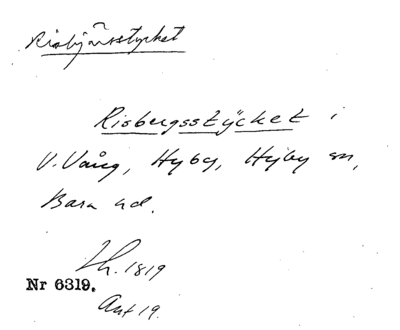 Risbjersstycket
Risbergsstÿcket i
V. Vång, Hyby, Hyby sn,
Bara hd.
Lh. 1819
Nr 6319.
Ant 19.